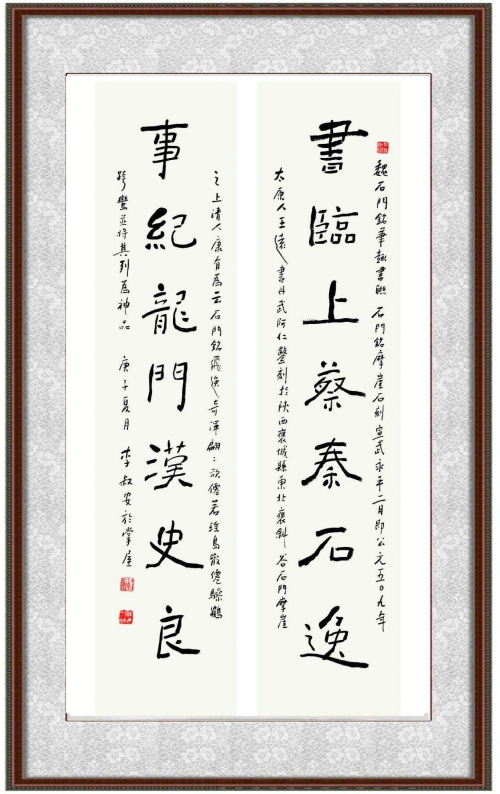 魏石門銘 石門銘摩崖石刻宣武永平二月即公元五〇九年
書臨上蔡秦石逸
太原人王遠書丹武阿仁鑿刻於陝西褒城縣東北褒斜谷石門摩崖
之上清人康有為云石門銘飛逸奇渾翩:欲僊若瑤島散僊驂鶴
事紀龍門漢史良
跨鸞並將其列為神品 庚子夏月 李叔安於掌屋